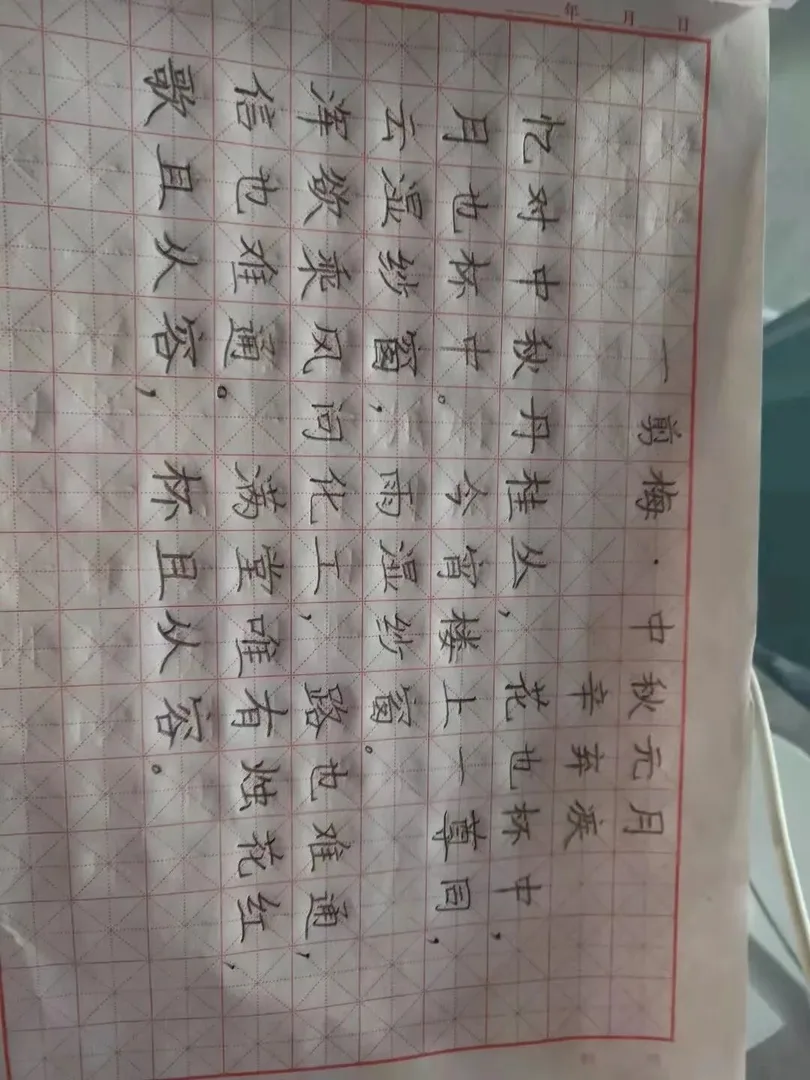 年 月 日
一剪梅·中秋元月
辛弃疾
忆对中秋丹桂丛，花也杯中，
月也杯中。今宵楼上一尊同，
云湿纱窗，雨湿纱窗。
浑欲乘风问化工，路也难通，
信也难通。满堂唯有烛花红，
歌且从容，杯且从容。